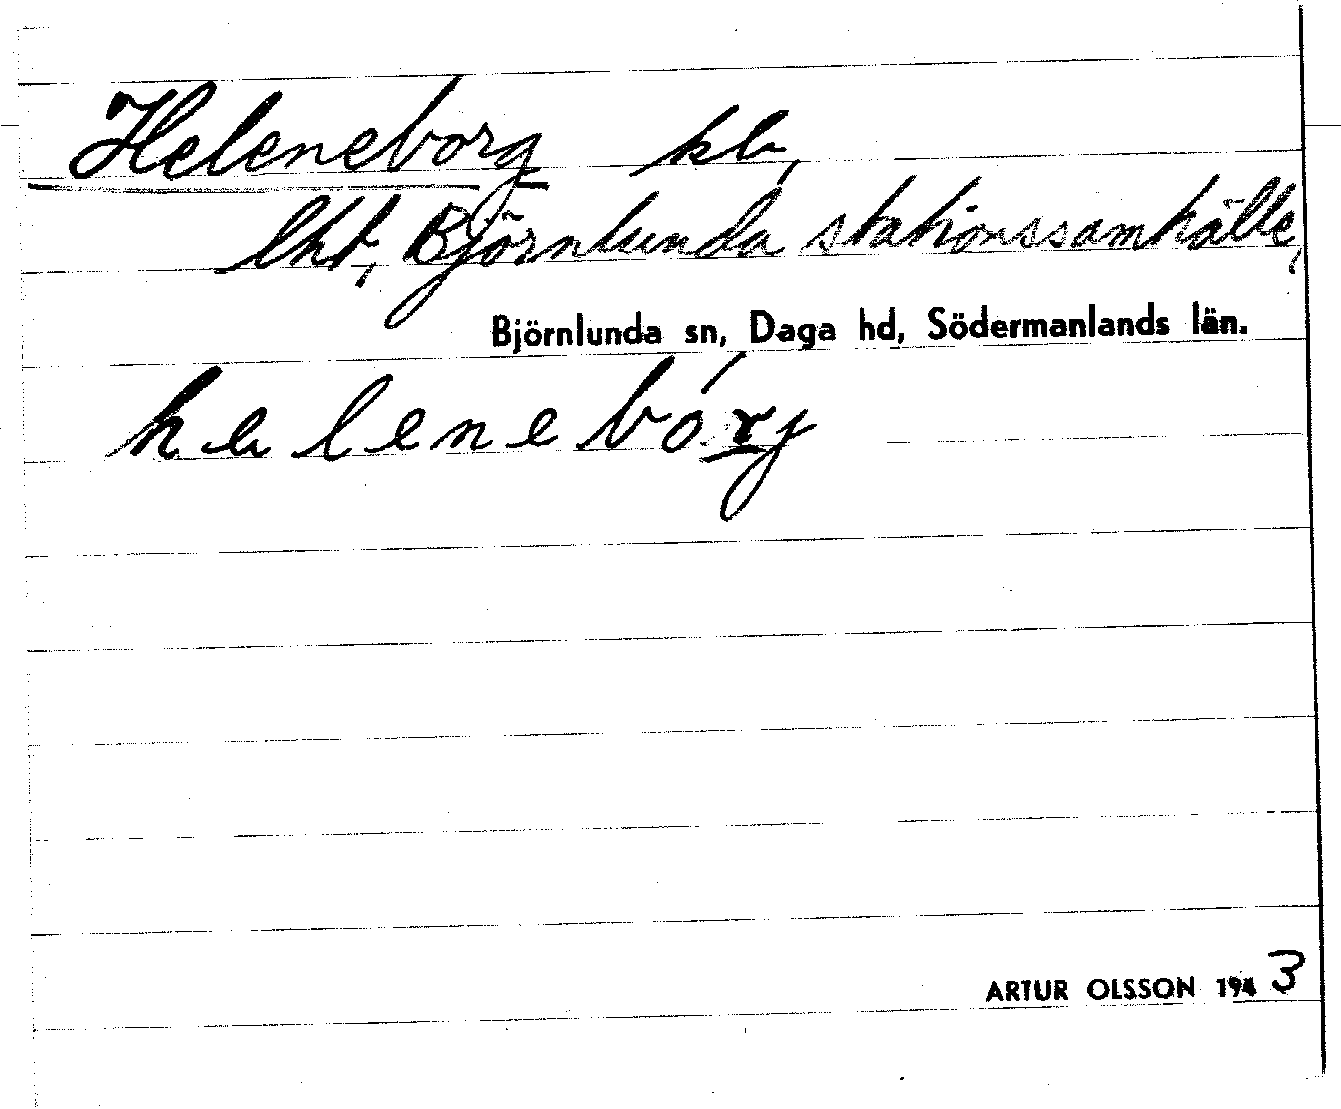 Heleneborg kb,
lht, Björnlunda stationssamhälle,
Björnlunda sn, Daga hd, Södermanlands län.
helenebórj
ARTUR OLSSON 1943